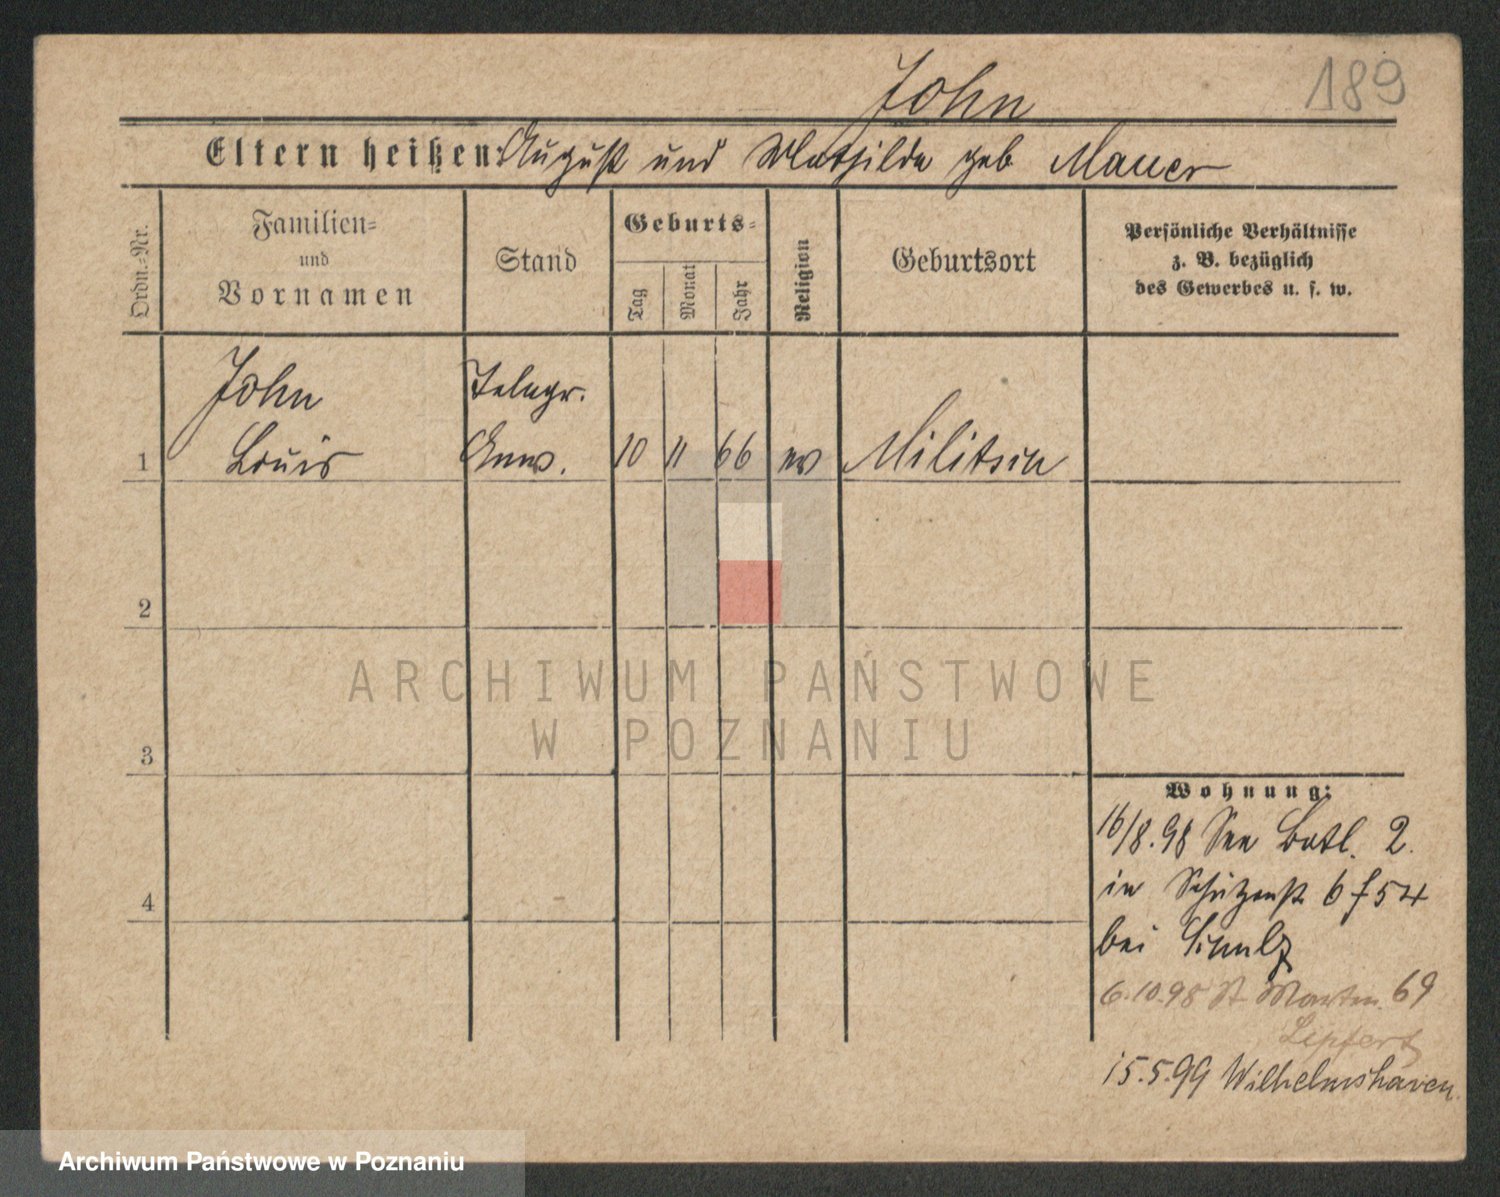 John
189
Eltern heißen: August und Mathilde geb Mauer
Ordn.-Nr.
Familien-
und
Vornamen
Stand
Geburts-
Tag
Monat
Jahr
Religion
Geburtsort
Persönliche Verhältnisse
z. B. bezüglich
des Gewerbes u. s. w.
John
Telegr.
1
Louis
Anw.
10
11
66
ev
Militsch
2
3
4
ARCHIWUM PAŃSTWOWE
W POZNANIU
Wohnung:
16/8.98 See Batl. 2.
in Schützenst 6
bei Schulz
6.10.98 St Martin 69
15.5.99 Wilhelmshaven.
Archiwum Państwowe w Poznaniu